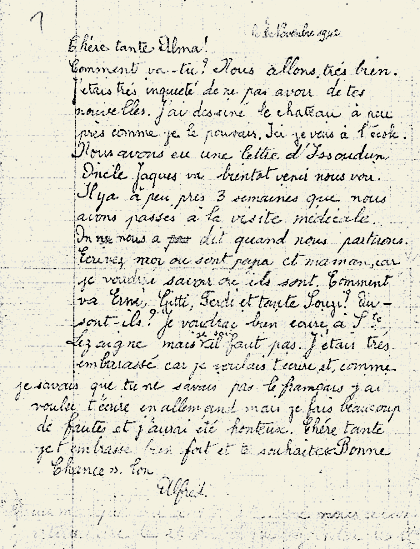 7
Novembre 1942
Chére tante Alma!
Comment va-tu? Nous allons trés bien.
J'etais trés inquieté de ne pas avoir de tes
nouvelles. J'ai dessiné le chateau à peu
prés comme je le pouvais. Ici je vais à l'école.
Nous avons eu une lettre d'Issoudun.
Oncle Jaques va bientôt venir nous voir.
Il y a à peu prés 3 semaines que nous
avions passés à la visite médecale.
On nous a dit quand nous partirons.
Ecrivez moi ou sont papa et maman, car
je voudrai savoir ou ils sont. Comment
va Erna, Gitti, Gerdi et tante Souzi? Ou
sont-ils? Je voudrai bien ecrire à Ste
Lezaigne mais il faut pas. J'étais trés
embarassé car je voulais t'ecrire et, comme
je savais que tu ne savais pas le français j'ai
voulu t'écrire en allemand mais je fais beaucoup
de fautes et j'aurai été honteux. Chére tante
je t'embrasse bien fort et te souhaite Bonne
Chance n. ton
Alfred.